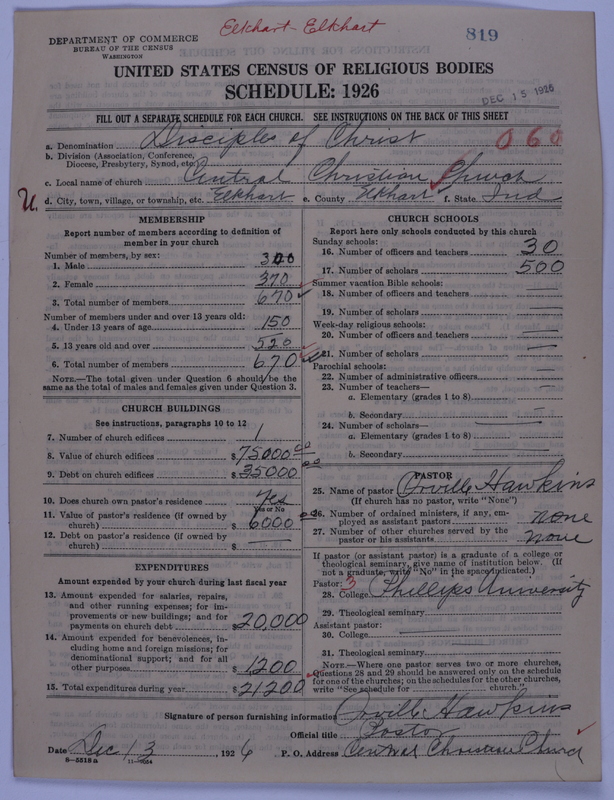 Elkhart-Elkhart
819
DEPARTMENT OF COMMERCE
BUREAU OF THE CENSUS
WASHINGTON
UNITED STATES CENSUS OF RELIGIOUS BODIES
SCHEDULE: 1926
DEC 15 1926
FILL OUT A SEPARATE SCHEDULE FOR EACH CHURCH. SEE INSTRUCTIONS ON THE BACK OF THIS SHEET
a. Denomination Disciples of Christ 060
b. Division (Association, Conference, Diocese, Presbytery, Synod, etc.
c. Local name of church Central Christian Church
U. d. City, town, village, or township, etc. Elkhart e. County Elkhart f. State Ind
MEMBERSHIP
Report number of members according to definition of
member in your church
Number of members, by sex:
1. Male 300
2. Female 370
3. Total number of members 670
Number of members under and over 13 years old:
4. Under 13 years of age 150
5. 13 years old and over 520
6. Total number of members 670
NOTE.—The total given under Question 6 should be the
same as the total of males and females given under Question 3.
CHURCH BUILDINGS
See instructions, paragraphs 10 to 12
7. Number of church edifices 1
8. Value of church edifices $75000 00
9. Debt on church edifices $35000 00
10. Does church own pastor's residence Yes
Yes or No
11. Value of pastor's residence (if owned by
church) $6000 00
12. Debt on pastor's residence (if owned by
church) $
EXPENDITURES
Amount expended by your church during last fiscal year
13. Amount expended for salaries, repairs,
and other running expenses; for im-
provements or new buildings; and for
payments on church debt $20,000
14. Amount expended for benevolences, in-
cluding home and foreign missions; for
denominational support; and for all
other purposes $1200
15. Total expenditures during year $21200
CHURCH SCHOOLS
Report here only schools conducted by this church
Sunday schools:
16. Number of officers and teachers 30
17. Number of scholars 500
Summer vacation Bible schools:
18. Number of officers and teachers
19. Number of scholars
Week-day religious schools:
20. Number of officers and teachers
21. Number of scholars
Parochial schools:
22. Number of administrative officers
23. Number of teachers—
a. Elementary (grades 1 to 8)
b. Secondary
24. Number of scholars—
a. Elementary (grades 1 to 8)
b. Secondary
PASTOR
25. Name of pastor Orville Hawkins
(If church has no pastor, write "None")
26. Number of ordained ministers, if any, em-
ployed as assistant pastors none
27. Number of other churches served by the
pastor or his assistants none
If pastor (or assistant pastor) is a graduate of a college or
theological seminary, give name of institution below. (If
not a graduate, write "No" in the space indicated.)
Pastor: 3
28. College Phillips University
29. Theological seminary
Assistant pastor:
30. College
31. Theological seminary
NOTE.—Where one pastor serves two or more churches,
Questions 28 and 29 should be answered only on the schedule
for one of the churches; on the schedules for the other churches,
write "See schedule for church."
Signature of person furnishing information Orville Hawkins
Official title Pastor
Date Dec 13 1926 P. O. Address Central Christian Church
8—5518a